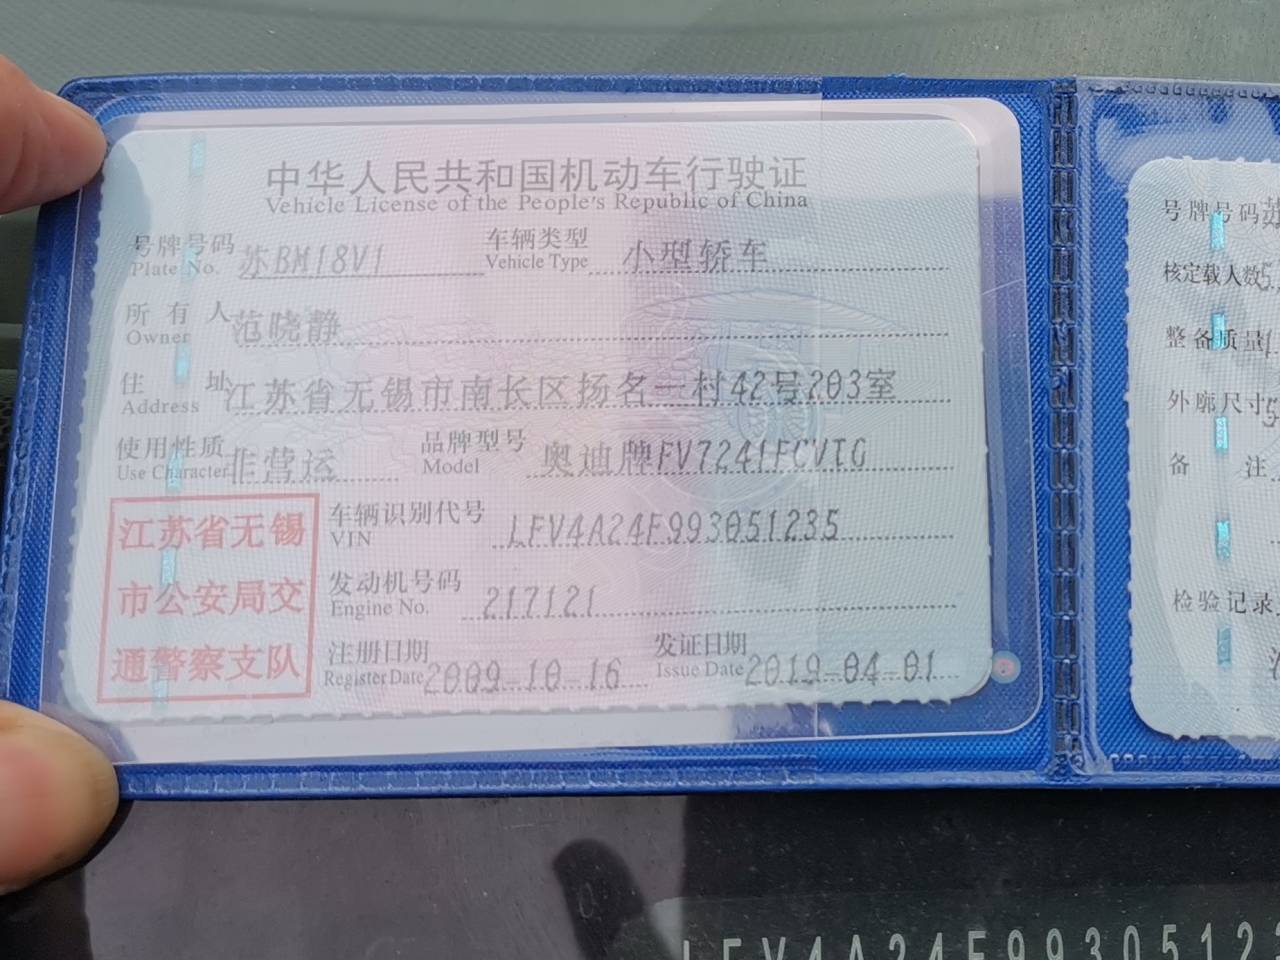 中华人民共和国机动车行驶证
Vehicle License of the People's Republic of China
号牌号码 苏BM18V1 车辆类型 小型轿车
Plate No. Vehicle Type
所有人 范晓静
Owner
住址 江苏省无锡市南长区扬名一村42号203室
Address
使用性质 非营运 品牌型号 奥迪牌FV7241FCVTG
Use Character Model
江苏省无锡
市公安局交
通警察支队
车辆识别代号 LFV4A24F993051235
VIN
发动机号码 217121
Engine No.
注册日期 2009-10-16 发证日期 2019-04-01
Register Date Issue Date
号牌号码
核定载人数 5
整备质量
外廓尺寸
备注
检验记录
LFV4A24F9930512